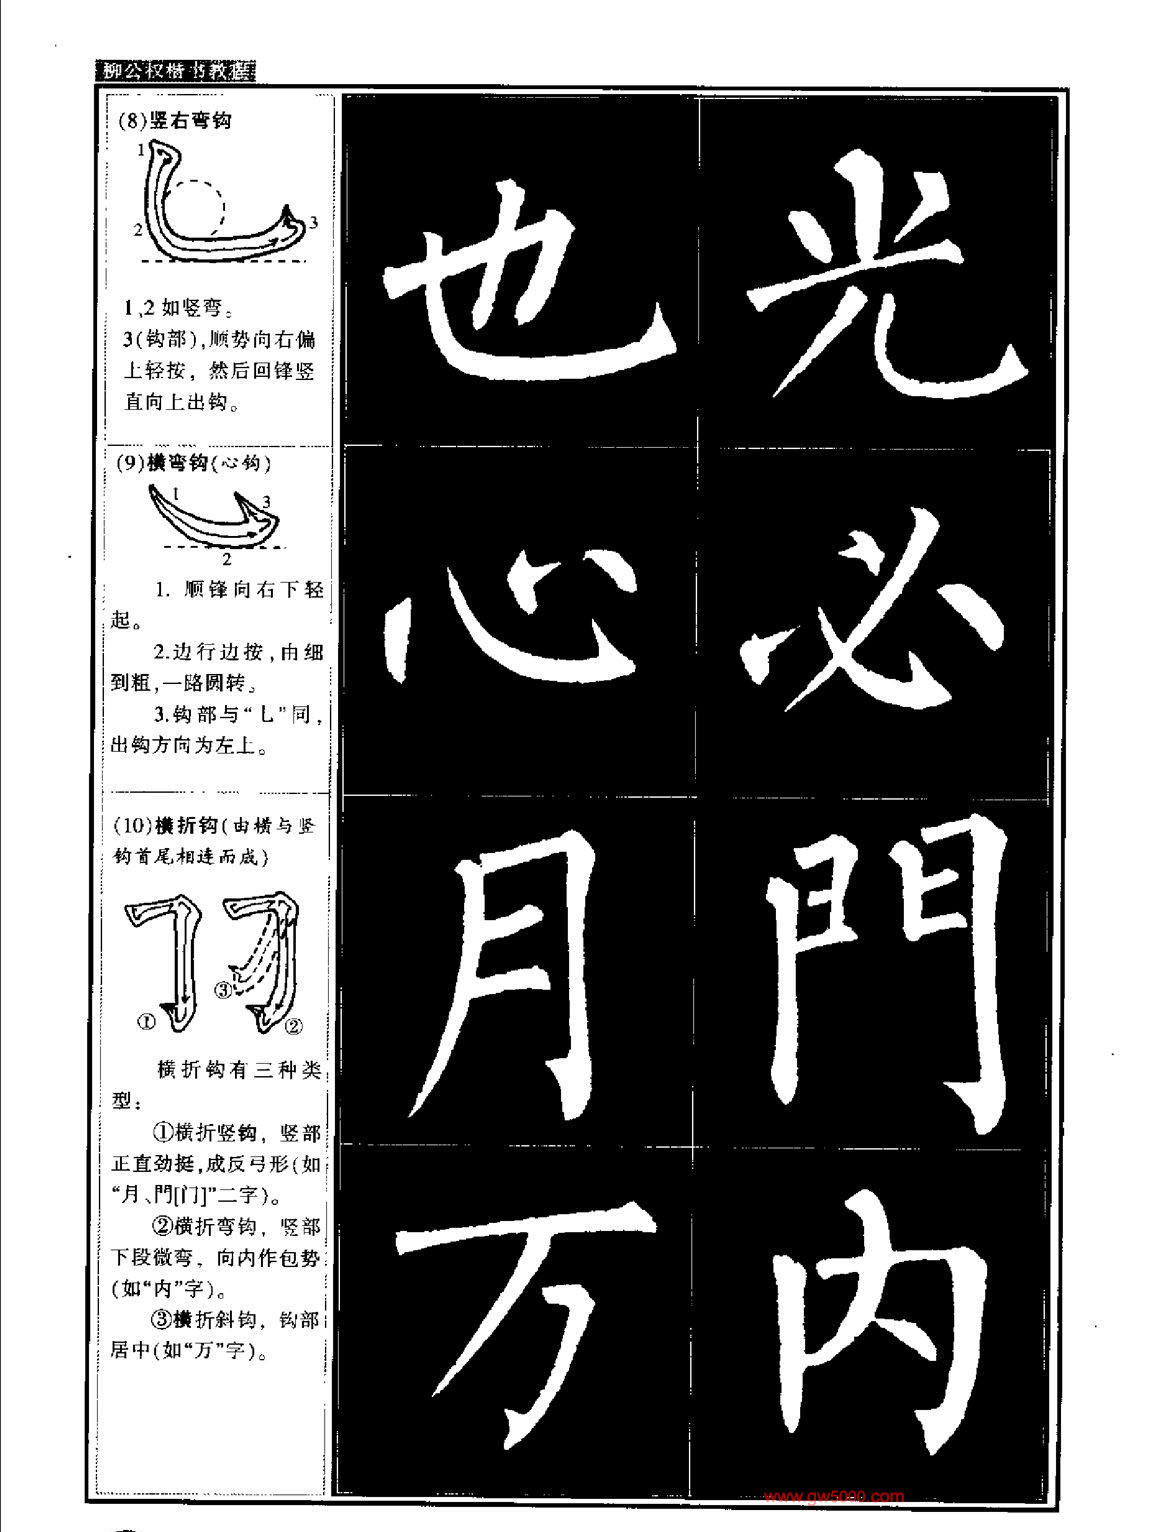 柳公权楷书教程
(8)竖右弯钩
1
2
3
1,2如竖弯。
3(钩部),顺势向右偏
上轻按，然后回锋竖
直向上出钩。
(9)横弯钩(心钩)
1
3
2
1. 顺锋向右下轻
起。
2.边行边按,由细
到粗,一路圆转。
3.钩部与“乚”同,
出钩方向为左上。
(10)横折钩(由横与竖
钩首尾相连而成)
①
③
②
横折钩有三种类
型:
①横折竖钩，竖部
正直劲挺,成反弓形(如
“月、門[门]”二字)。
②横折弯钩，竖部
下段微弯，向内作包势
(如“内”字)。
③横折斜钩，钩部
居中(如“万”字)。
也 光
心 必
月 門
万 内
www.gw5000.com